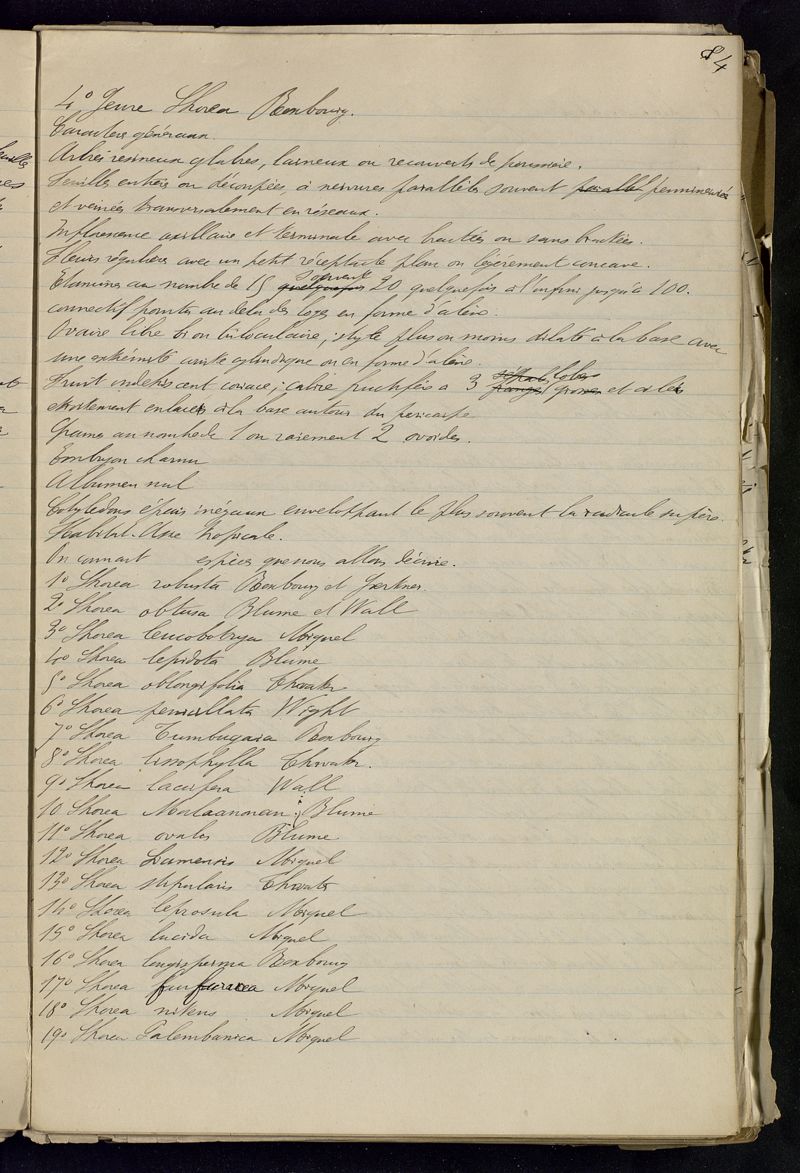 84
4° Genre Shorea Roxbourg.
Caracters généraux.
Arbres resineux glabres, laineux ou recouverts de poussière.
Feuilles entières ou découpées, à nervures parallèles souvent parallel penninerviées
et veinées transversalement en réseaux.
Inflorescence axillaire et terminale avec bractées ou sans bractées.
Fleurs régulières avec un petit réceptacle plan ou légèrement concave.
Etamines au nombre de 15 quelquefois souvent 20 quelquefois à l'infini jusqu'à 100.
connectif pointu au delà des loges en forme d'alène.
Ovaire libre tri ou biloculaire, style plus ou moins dilaté à la base avec
une extrémité courte cylindrique ou en forme d'alène.
Fruit indehiscent coriace; calice fructifère à 3 sépales lobes et ailes
etroitement enlacés à la base autour du pericarpe
Graines au nombre de 1 ou rarement 2 ovoides.
Embryon charnu
Albumen nul
Cotyledons épais inégaux enveloppant le plus souvent la radicule supère.
Habitat. Asie Tropicale.
On connait espèces que nous allons décrire.
1° Shorea robusta Roxbourg et Gertner.
2° Shorea obtusa Blume et Wall
3° Shorea leucobotrya Miquel
4° Shorea lepidota Blume
5° Shorea oblongifolia Thwates
6° Shorea penicillata Wight
7° Shorea Tumbugaia Roxbourg
8° Shorea lissophylla Thwates.
9° Shorea laccifera Wall
10 Shorea Malaanonan Blume
11° Shorea ovales Blume
12° Shorea Miquel
13° Shorea stipularis Thwates
14° Shorea leprosula Miquel
15° Shorea lucida Miquel
16° Shorea longisperma Roxbourg
17° Shorea furfuracea Miquel
18° Shorea nitens Miquel
19° Shorea Palembanica Miquel